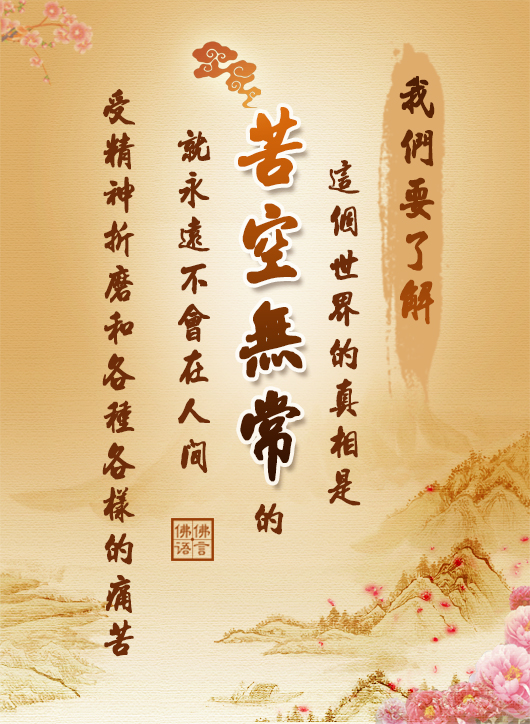 我們要了解
這個世界的真相是
苦空無常的
就永遠不會在人间
受精神折磨和各種各樣的痛苦
佛言
佛语